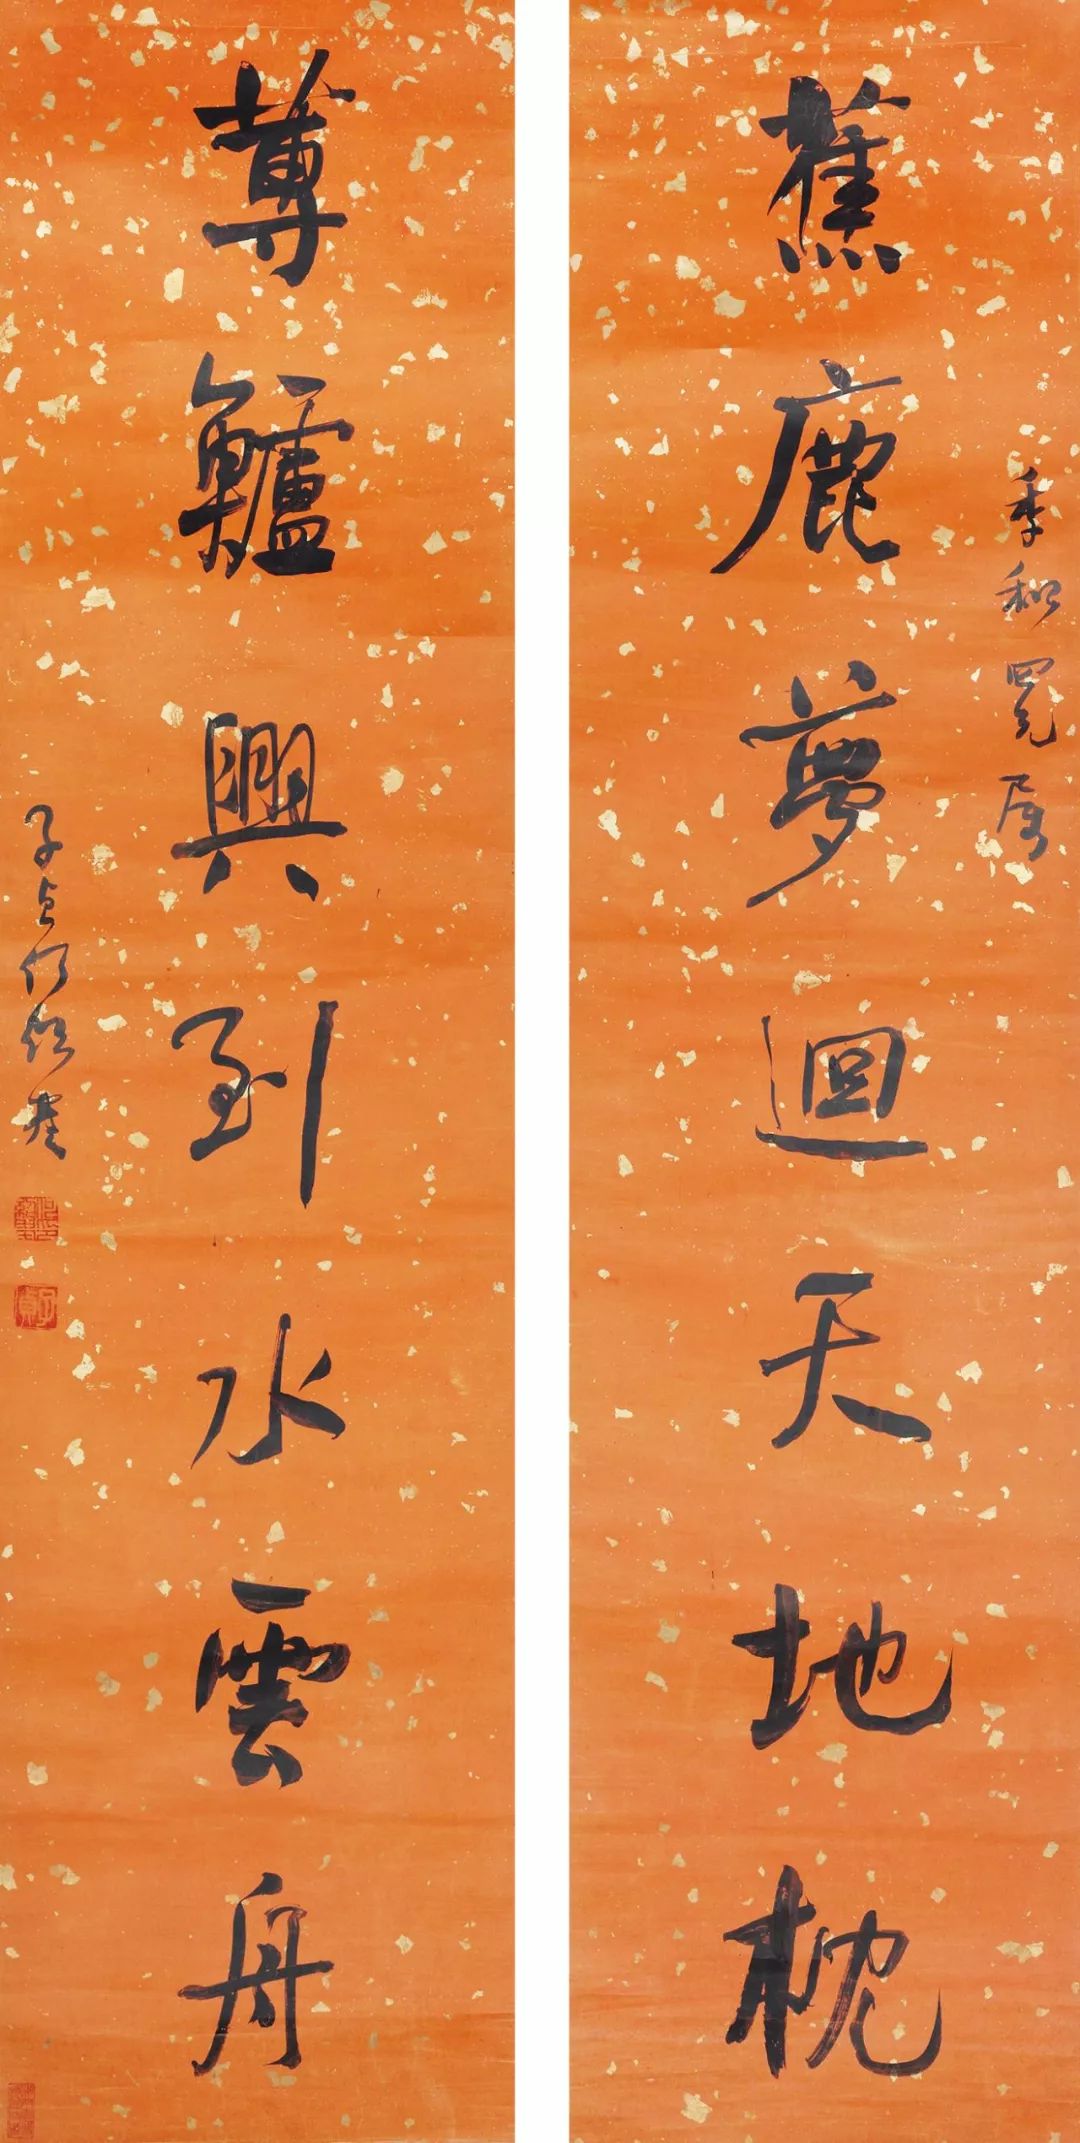 蕉鹿夢迴天地枕
季和四兄屬
蓴鱸興到水雲舟
子貞何紹基
子貞